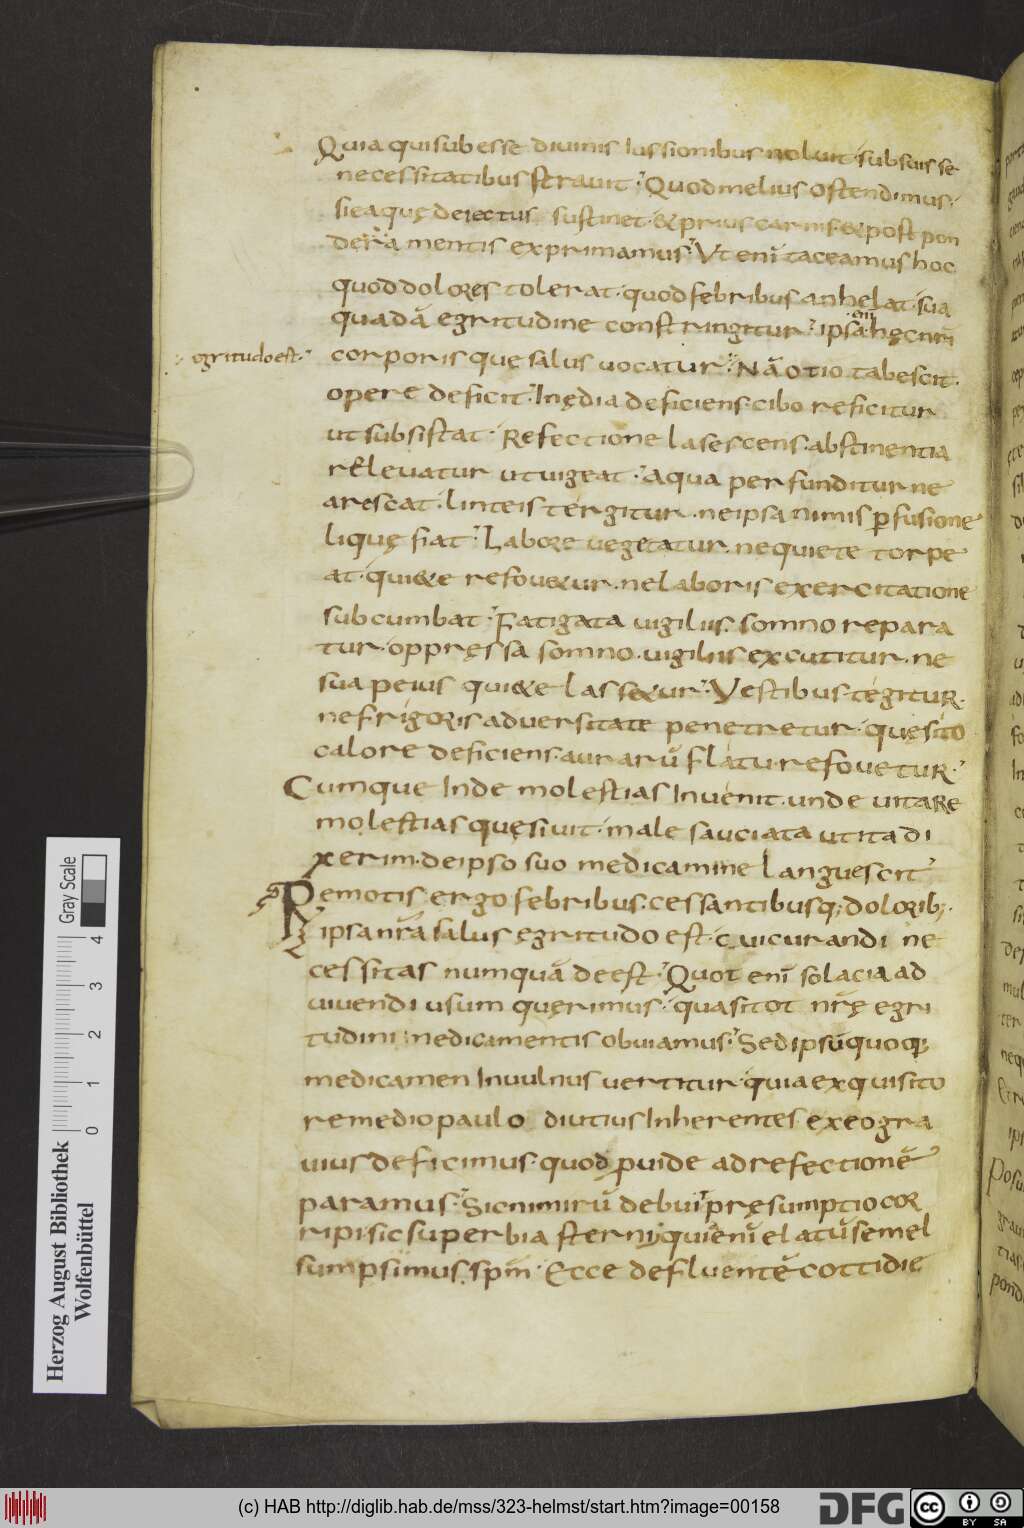 Quia qui subesse diuinis Iussionibus noluit sub suis se
necessitatibus strauit. Quod melius ostendimus.
si ea quę deiectus sustinet. & prius carnis. & post pon
dera mentis exprimamus. Ut enī taceamus hoc
quod dolores tolerat. quod febribus anhelat. sua
quadā egritudine constringitur. ipsa hęc nr̄i
egritudo est.
corporis quę salus uocatur. Nā otio tabescit.
opere deficit. Inędia deficiens. cibo reficitur
ut subsistat. Refectione lasescens. abstinentia
releuatur ut uigeat. Aqua perfunditur ne
arescat. linteis tergitur. ne ipsa nimis ꝑfusione
liquę fiat. Labore uegetatur. ne quiete torpe
at. qui&e refou&ur. ne laboris exercitatione
subcumbat. Fatigata uigiliis. somno repara
tur. oppręssa somno. uigiliis excutitur. ne
sua peius qui&e lass&ur. Vestibus tegitur.
ne frigoris aduersitate penetretur. quęsito
calore deficiens. aurarū flatu refouetur.
Cumque Inde molestias Inuenit. unde uitare
molestias quęsiuit. male sauciata ut ita di
xerim. de ipso suo medicamine languescit
Remotis ergo febribus. cessantibusq; dolorib;.
ipsa nr̄a salus ęgritudo est. cui curandi ne
cessitas numquā deest. Quot enī solacia ad
uiuendi usum quęrimus. quasi tot nr̄ę egri
tudini medicamentis obuiamus. Sed ipsū quoq;
medicamen In uulnus uertitur. quia exquisito
remedio paulo diutius Inherentes. ex eo gra
uius deficimus. quod ꝓuide ad refectionē
paramus. Sic nimirū debuit pręsumptio cor
ripi sic superbia sterni; quia enī elatū semel
sumpsimus. spm̄. Ecce defluentē cottidie
(c) HAB http://diglib.hab.de/mss/323-helmst/start.htm?image=00158
DFG
cc BY SA
Gray Scale
0 1 2 3 4
Herzog August Bibliothek
Wolfenbüttel